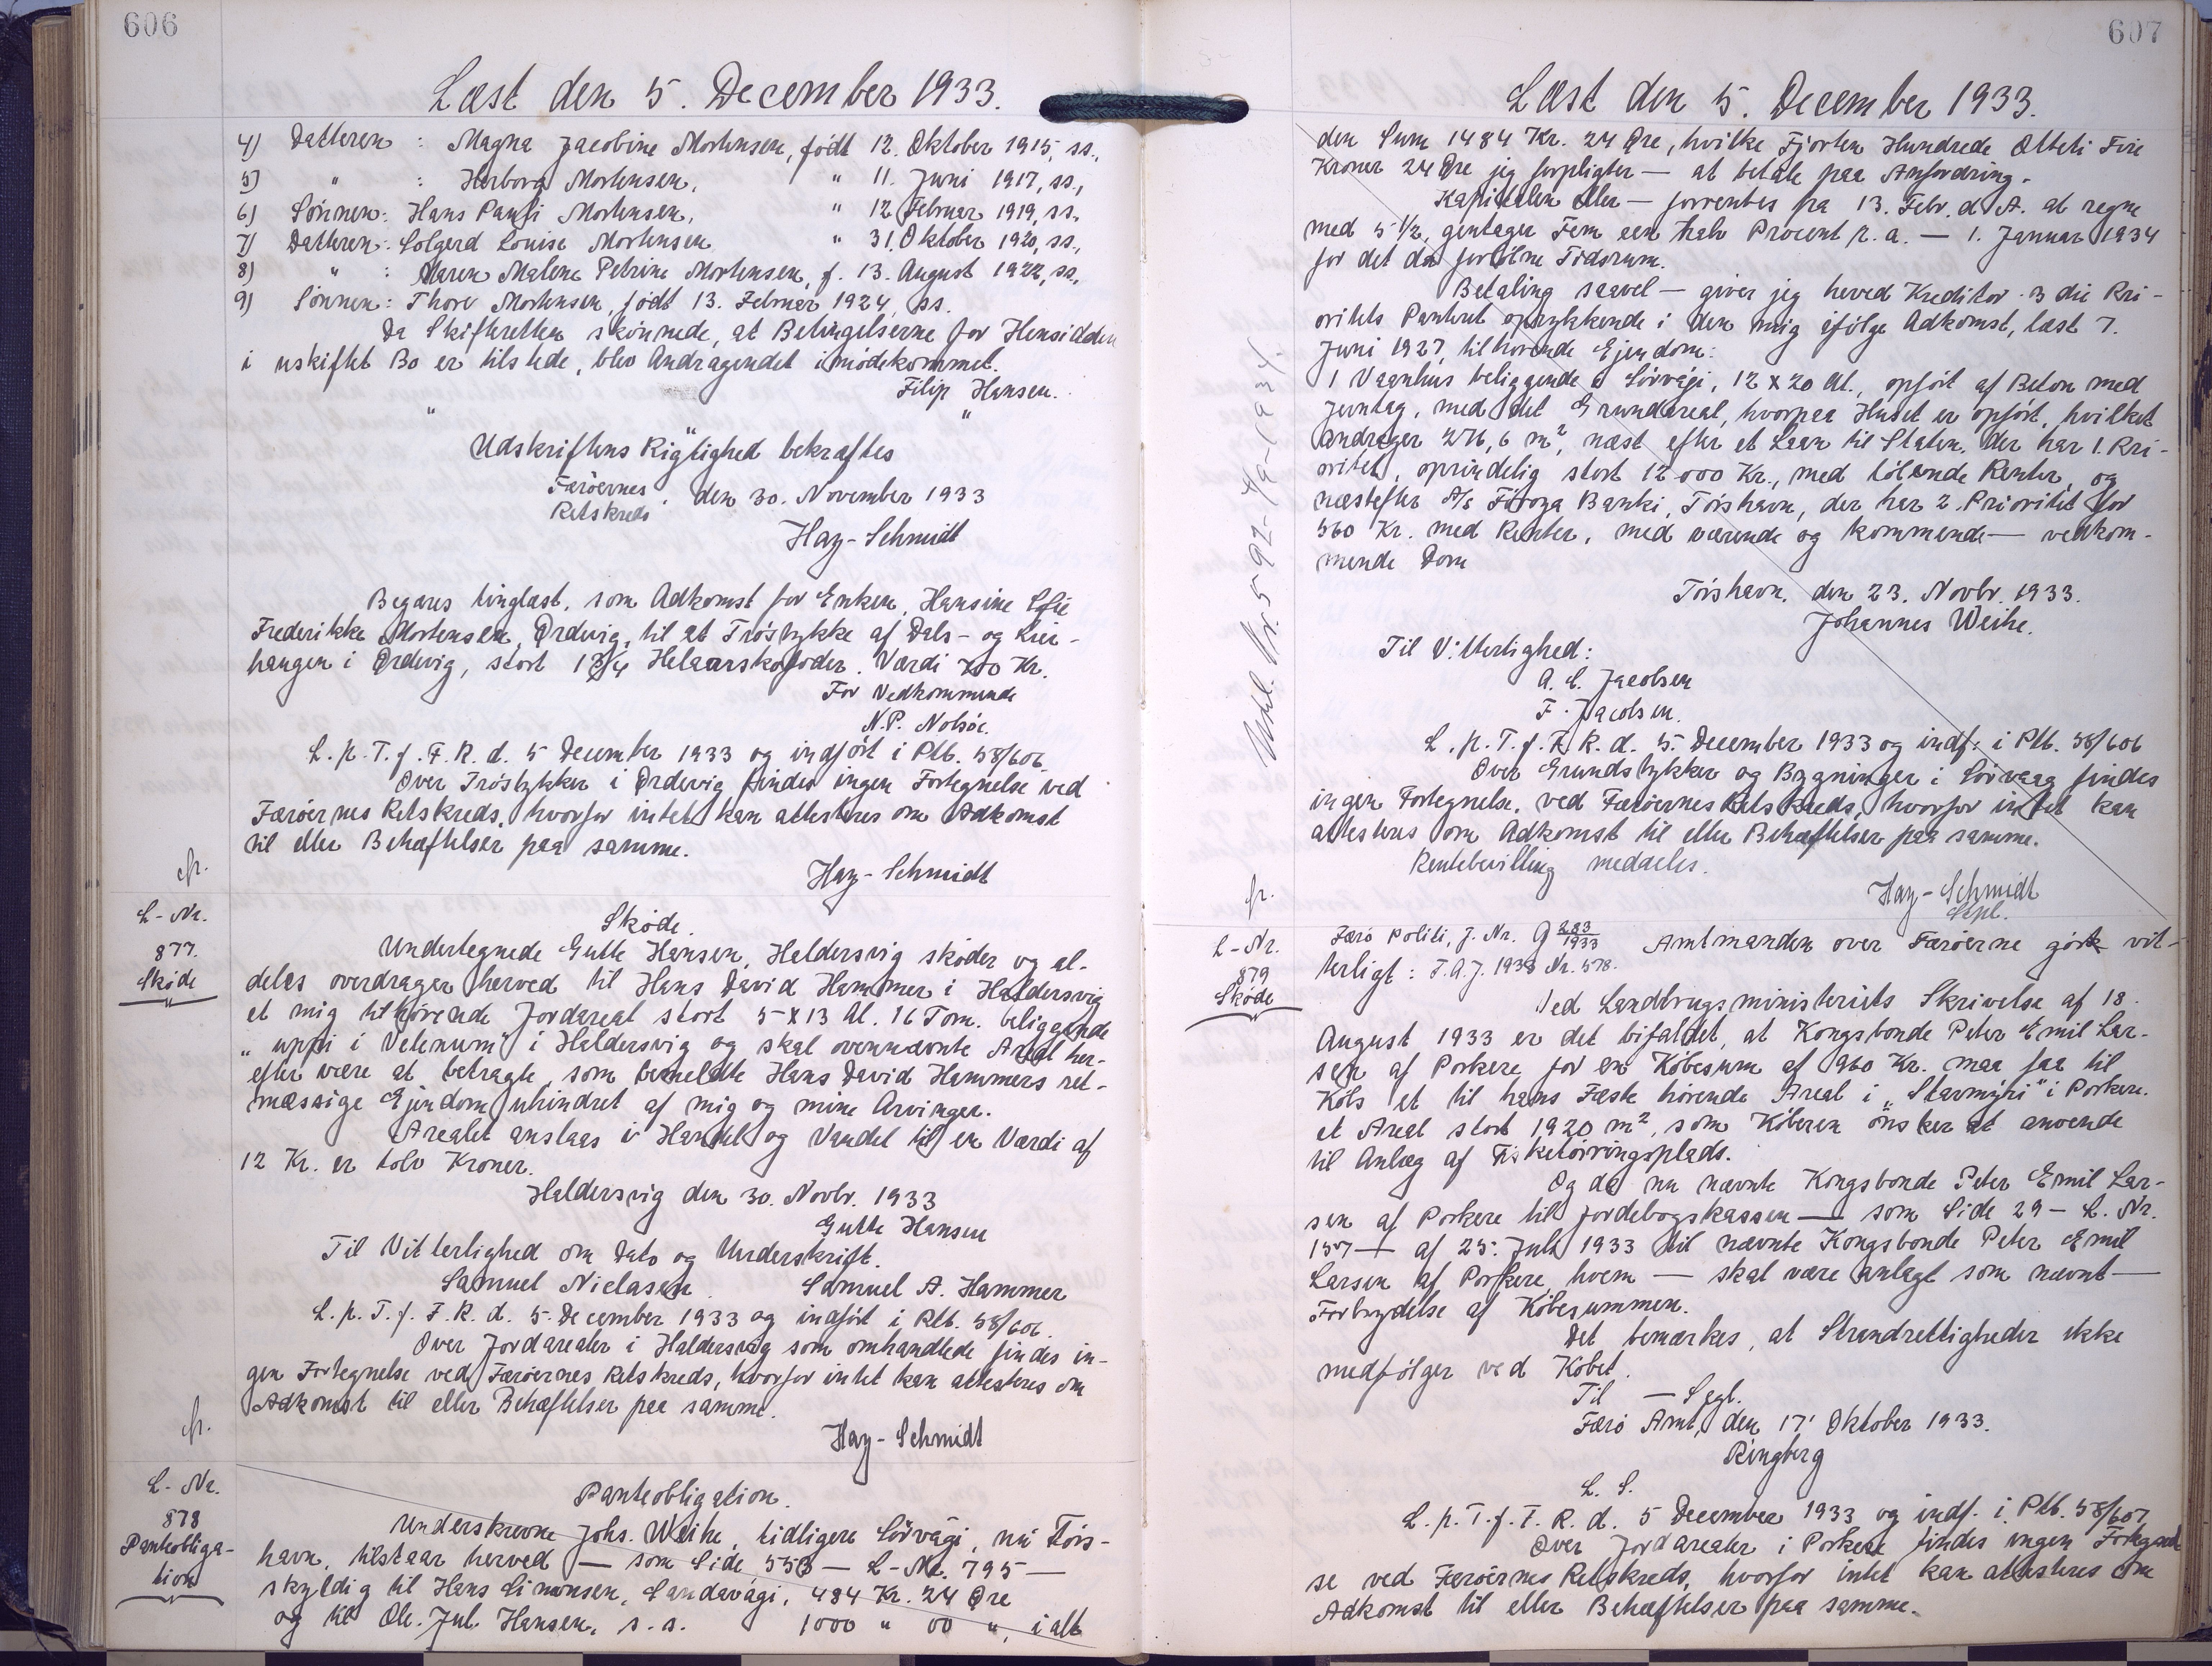 606
Læst den 5. December 1933.
4) Datteren : Magna Jacobine Mortensen, født 12. Oktober 1915, ss.,
5) " : Herborg Mortensen, " 11. Juni 1917, ss.,
6) Sönnen: Hans Pauli Mortensen, " 12 Februar 1919, ss.,
7) Datteren: Solgerd Louise Mortensen " 31. Oktober 1920, ss.,
8) " : Maren Malene Petrine Mortensen, f. 13. August 1922, ss.,
9) Sönnen: Thorv Mortensen, födt 13. Februar 1924, ss.
Da Skifteretten skönnede, at Betingelserne for Hensidden
i uskiftet Bo er tilstede, blev Andragendet imödekommet.
Filip Hansen.
" " "
Udskriftens Rigtighed bekræftes
Færöernes Retskreds, den 30. November 1933
Hay-Schmidt
Begæres tinglæst, som Adkomst for Enken, Hansine Sofie
Frederikke Mortensen, Ördevig, til et Tröstykke af Dals- og Lier-
haugen i Ördevig, stort 1 3/4 Helaarskofoder. Værdi 200 Kr.
For Vedkommende
N.P. Nolsöe.
L.p.T.f.F.R.d. 5 December 1933 og indfört i Ptb. 58/606.
Over Tröstykker i Ördevig findes ingen Fortegnelse ved
Færöernes Retskreds, hvorfor intet kan attesteres om Adkomst
til eller Behæftelser paa samme.
Hay-Schmidt
fr.
L-Nr.
877.
Sköde
"
Sköde.
Undertegnede Gutte Hansen, Haldersvig sköder og al-
deles overdrager herved til Hans David Hammer i Haldersvig
et mig tilhörende Jordareal stort 5 x 13 Al. 16 Tom. beliggende
"uppi i Velinum" i Haldersvig og skal ovennævnte Areal her-
efter være at betragte som bemeldte Hans David Hammers ret-
mæssige Ejendom uhindret af mig og mine Arvinger.
Arealet anslaas i Handel og Vandel til en Værdi af
12 Kr. er tolv Kroner.
Haldersvig den 30. Novbr. 1933
Gutte Hansen
Til Vitterlighed om Dato og Underskrift.
Samuel Niclasen. Samuel A. Hammer
L.p.T.f.F.R.d. 5. December 1933 og indfört i Ptb. 58/606.
Over Jordarealer i Haldersvig som omhandlede findes in-
gen Fortegnelse ved Færöernes Retskreds, hvorfor intet kan attesteres om
Adkomst til eller Behæftelser paa samme.
Hay-Schmidt
fr.
L-Nr.
878
Panteobliga-
tion
Panteobligation.
Underskrevne Johs. Weihe, tidligere Sörvági, nu Tórs-
havn, tilstaar herved — som Side 553 — L-Nr. 795 —
skyldig til Hans Simonsen, Sandavági, 484 Kr. 24 Øre
og til Ole. Jul. Hansen, s.s. 1000 " 00 ", ialt
607
Læst den 5. December 1933.
den Sum 1484 Kr. 24 Øre, hvilke Fjorten Hundrede Otteti Fire
Kroner 24 Øre jeg forpligter — at betale paa Anfordring.
Kapitalen eller — forrentes fra 13. Febr. d.A. at regne
med 5 1/2, gentager Fem een halv Procent p.a. — 1. Januar 1934
for det da forlöbne Tidsrum.
Betaling saavel — giver jeg herved Kreditor 3 die Pri-
oritets Panteret oprykkende i den mig ifölge Adkomst, læst 7.
Juni 1927, tilhörende Ejendom:
1 Vaanhus beliggende i Sörvági, 12 x 20 Al., opfört af Beton med
Jerntag, med det Grundareal, hvorpaa Huset er opfört, hvilket
andrager 276,6 m², næst efter et Laan til Staten, der har 1. Pri-
oritet, oprindelig stort 12000 Kr., med lölende Renter, og
næstefter A/S Föroya Banki, Tórshavn, der har 2. Prioritet for
560 Kr. med Renter, med værende og kommende — vedkom-
mende Dom
Tórshavn, den 23. Novbr. 1933.
Johannes Weihe.
Til Vitterlighed:
A. C. Jacobsen
F. Jacobsen.
L.p.T.f.F.R.d. 5. December 1933 og indf. i Ptb. 58/606
Over Grundstykker og Bygninger i Sörvaag findes
ingen Fortegnelse, ved Færöernes Retskreds, hvorfor intet kan
attesteres om Adkomst til eller Behæftelser paa samme.
Rentebevilling meddeles.
Hay-Schmidt
Udsl. Nr. 592-4/9-1934.
fr.
L-Nr.
879
Sköde
Færö Politi, J. Nr. 9 283/1933 Amtmanden over Færöerne gör vit-
terligt: F.A.J. 1933 Nr. 578.
Ved Landbrugsministeriets Skrivelse af 18.
August 1933 er det bifaldet, at Kongsbonde Peter Emil Lar-
sen af Porkere for en Köbesum af 960 Kr. maa faa til
Köbs et til hans Fæste hörende Areal i "Stavmýri" i Porkere.
et Areal stort 1920 m², som Köberen önsker at anvende
til Anlæg af Fisketörringsplads.
Og da nu nævnte Kongsbonde Peter Emil Lar-
sen af Porkere til Jordebogskassen — som Side 29 — L. Nr.
157 — af 25. Juli 1933 til nævnte Kongsbonde Peter Emil
Larsen af Porkere, hvem — skal være anlagt som nævnt —
Forbrydelse af Köbesummen.
Det bemærkes, at Strandrettigheder ikke
medfölger ved Köbet.
Til — Segl.
Færö Amt, den 17' Oktober 1933.
Ringberg
L. S.
L.p.T.f.F.R.d. 5 December 1933 og indf. i Ptb. 58/607
Over Jordarealer i Porkere findes ingen Fortegnel
se ved Færöernes Retskreds, hvorfor intet kan attesteres om
Adkomst til eller Behæftelser paa samme.